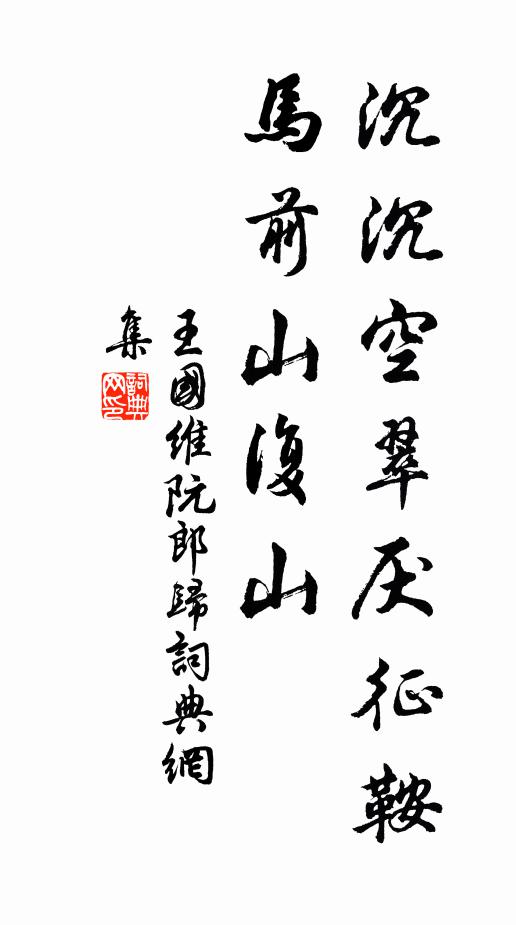 沉沉空翠厌征鞍
馬前山復山
王國維阮郎歸詞典網
集
詞典网印